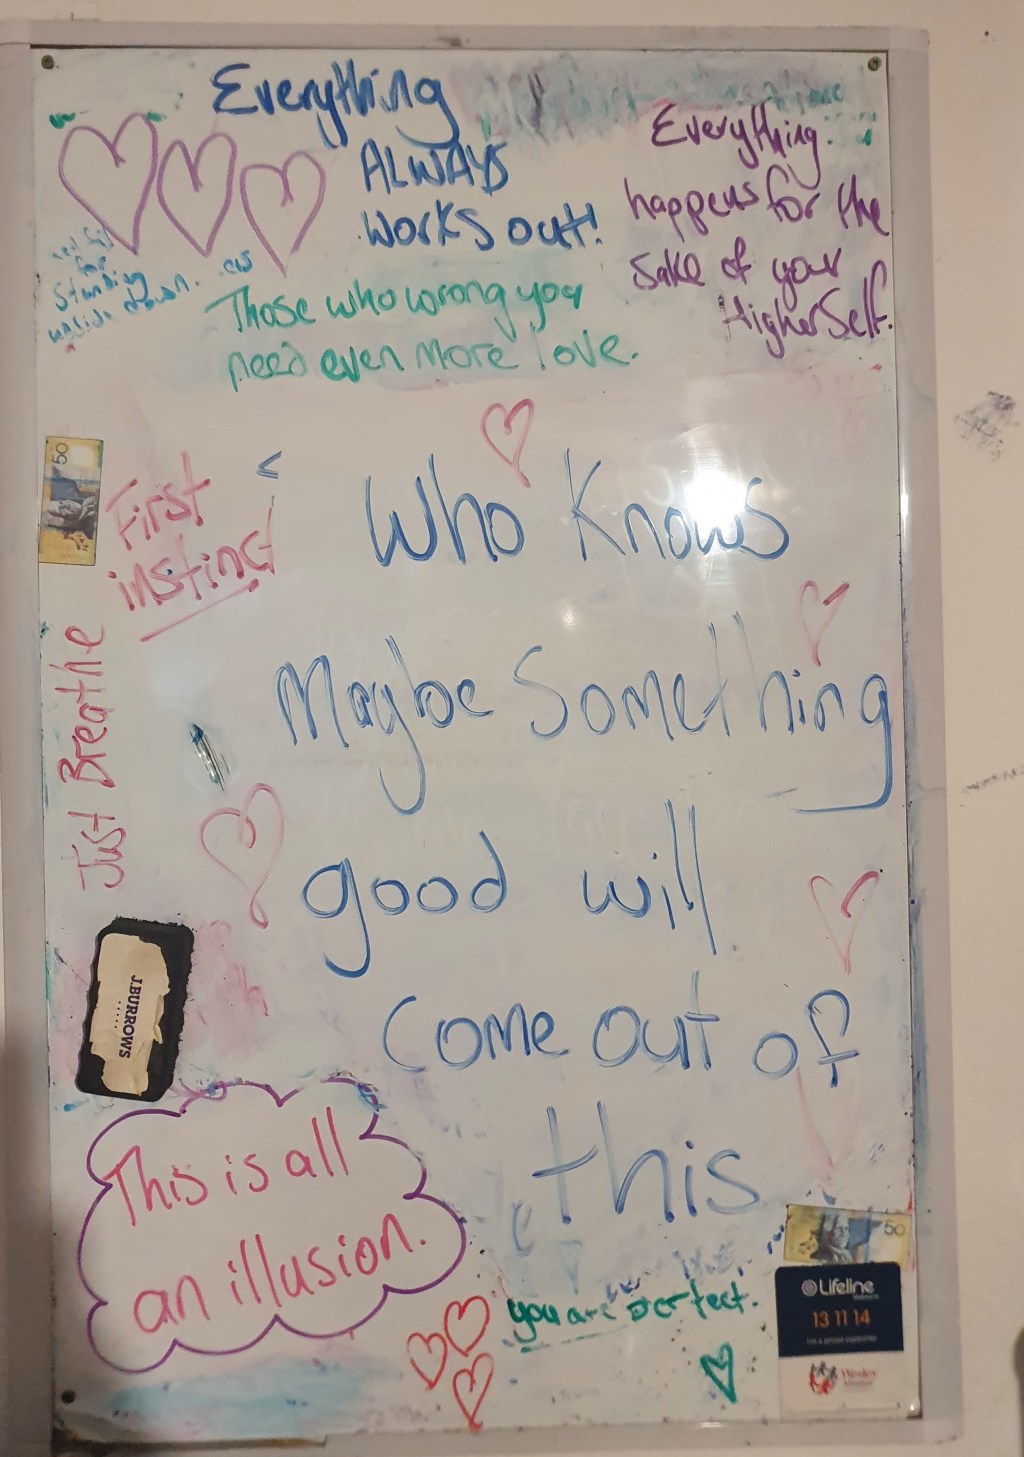 Everything
ALWAYS
works out!
Everything
happens for the
sake of your
Higher Self.
for
Standing
down.
Those who wrong you
need even more love.
50
First
instinct
Just Breathe
Who Knows
Maybe Something
good will
come out of
this
J.BURROWS
This is all
an illusion.
you are perfect.
50
Lifeline
13 11 14
Wesley